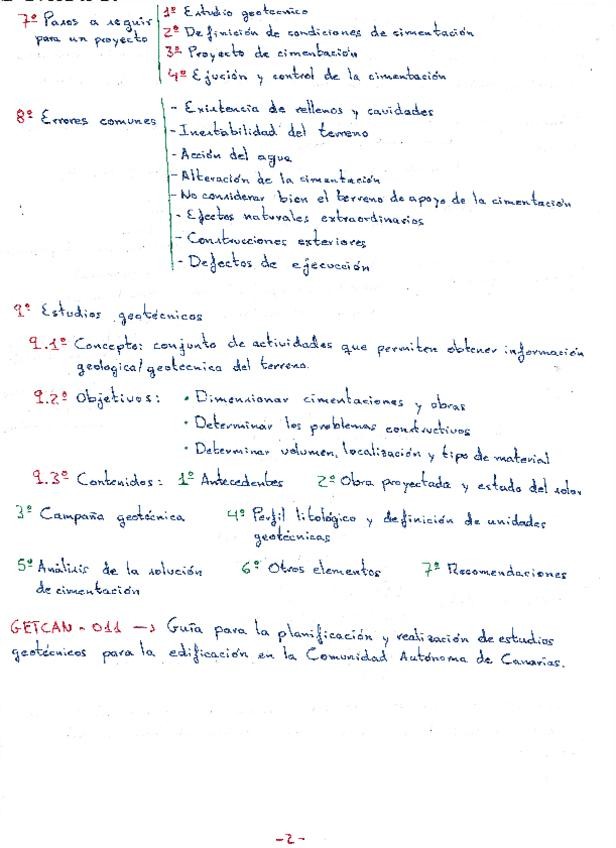 7º Pasos a seguir para un proyecto
1º Estudio geotecnico
2º Definición de condiciones de cimentación
3º Proyecto de cimentación
4º Ejución y control de la cimentación
8º Errores comunes
- Existencia de rellenos y cavidades
- Inestabilidad del terreno
- Acción del agua
- Alteración de la cimentación
- No considerar bien el terreno de apoyo de la cimentación
- Efectos naturales extraordinarios
- Construcciones exteriores
- Defectos de ejecucción
9º Estudios geotécnicos
9.1º Concepto: conjunto de actividades que permiten obtener información
geologica/geotecnica del terreno.
9.2º Objetivos: • Dimensionar cimentaciones y obras
• Determinar los problemas constructivos
• Determinar volumen, localización y tipo de material
9.3º Contenidos: 1º Antecedentes 2º Obra proyectada y estado del solar
3º Campaña geotécnica 4º Perfil litológico y definición de unidades
geotécnicas
5º Análisis de la solución 6º Otros elementos 7º Recomendaciones
de cimentación
GETCAN-011 → Guía para la planificación y realización de estudios
geotécnicos para la edificación en la Comunidad Autónoma de Canarias.
-2-